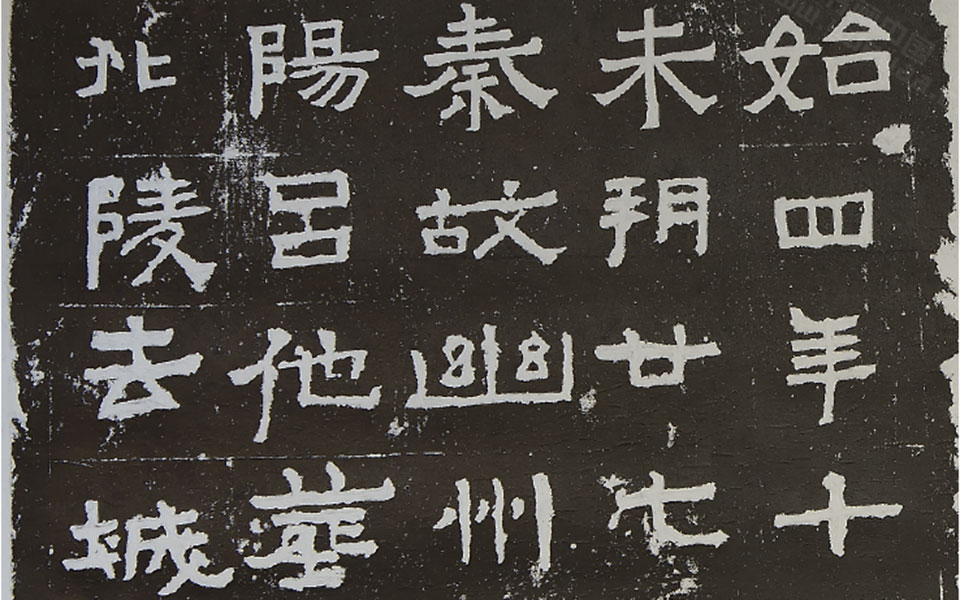 始四年十
未朔廿七
秦故幽州
陽呂他葬
北陵去城